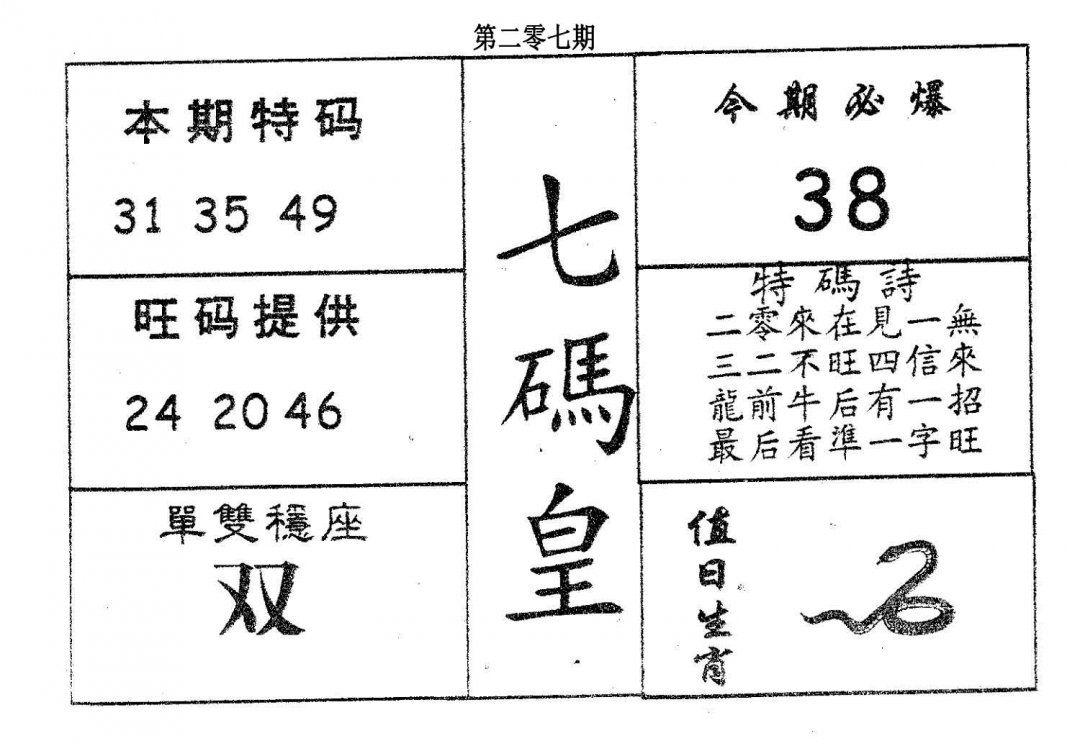 第二零七期
本期特码
31 35 49
旺码提供
24 20 46
單雙穩座
双
七碼皇
今期必爆
38
特碼詩
二零來在見一無
三二不旺四信來
龍前牛后有一招
最后看準一字旺
值日生肖